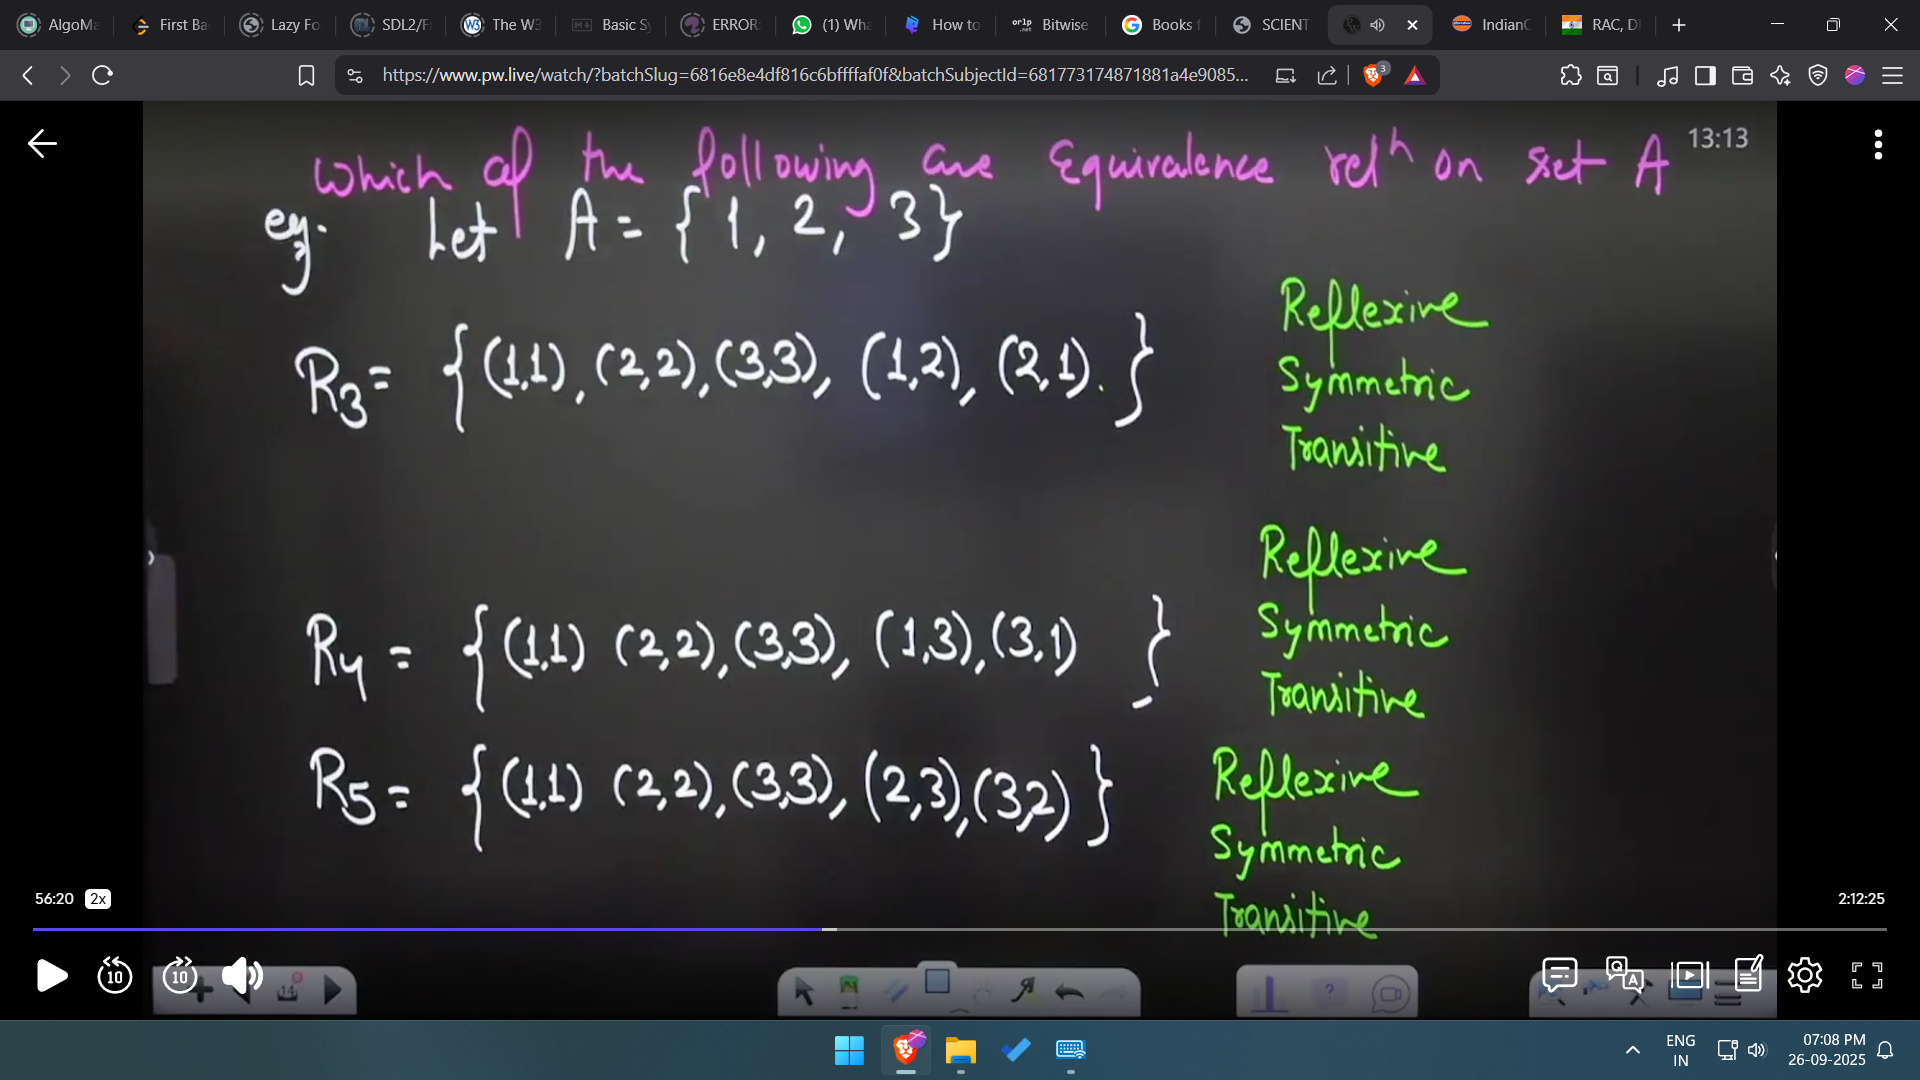 AlgoMa
First Ba
Lazy Fo
SDL2/F
The W3
Basic Sy
ERROR:
(1) Wha
How to
Bitwise
Books f
SCIENT
IndianC
RAC, D
https://www.pw.live/watch/?batchSlug=6816e8e4df816c6bffffaf0f&batchSubjectId=681773174871881a4e9085...
3
13:13
Which of the following are Equivalence relⁿ on set A
eg. Let A = { 1, 2, 3}
R3 = { (1,1), (2,2), (3,3), (1,2), (2,1). }
Reflexive
Symmetric
Transitive
R4 = { (1,1) (2,2), (3,3), (1,3), (3,1) }
Reflexive
Symmetric
Transitive
R5 = { (1,1) (2,2), (3,3), (2,3), (3,2) }
Reflexive
Symmetric
Transitive
56:20 2x
2:12:25
10
10
14
ENG
IN
07:08 PM
26-09-2025